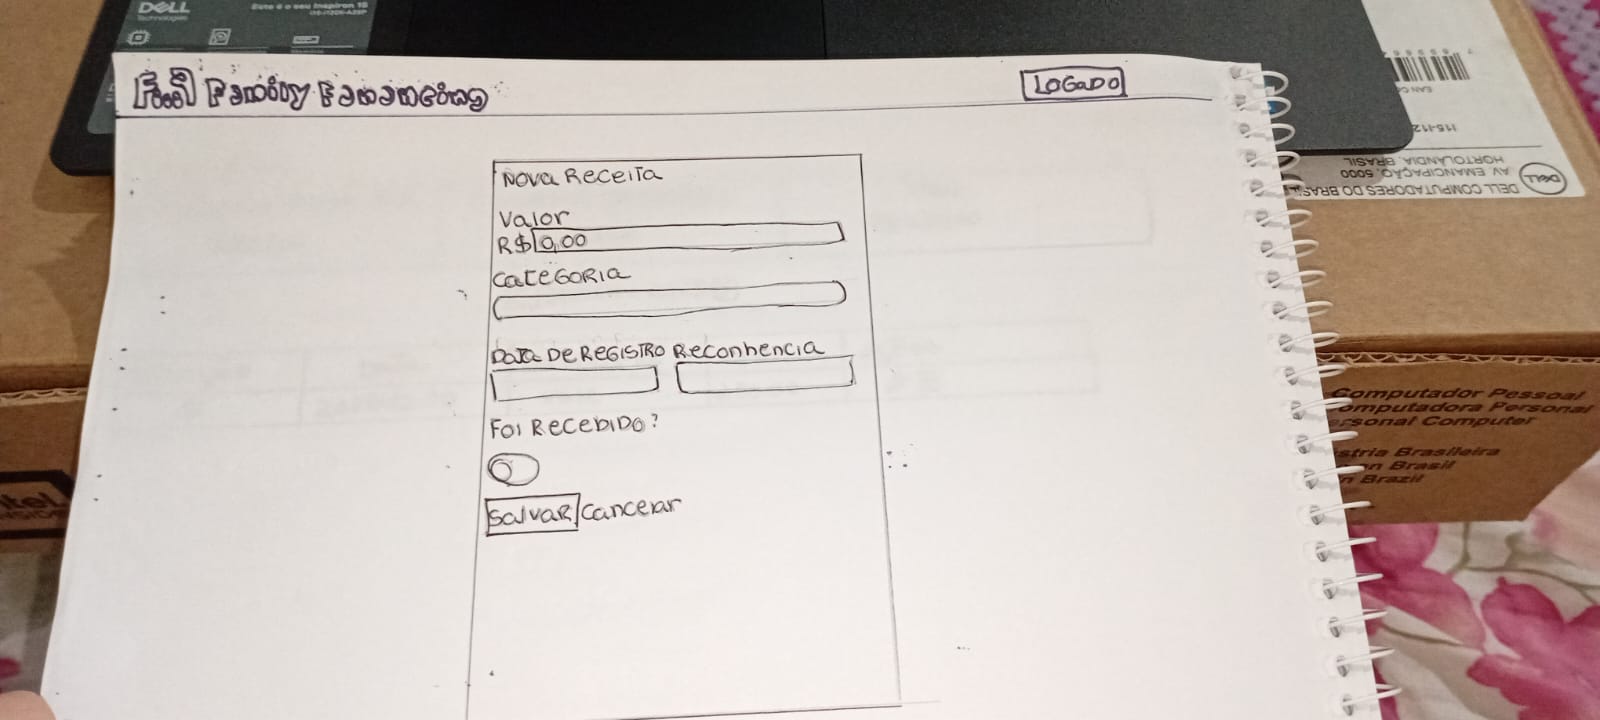 DELL
Technologies
Este é o seu Inspiron 15
Family Finanças
LOGADO
Nova Receita
Valor
R$ 0,00
Categoria
Data De Registro Reconhencia
Foi Recebido?
Salvar Cancelar
EAN
115-112
DELL COMPUTADORES DO BRASIL
AV EMANCIPAÇÃO, 5000
HORTOLÂNDIA, BRASIL
DELL
Computador Pessoal
Computadora Personal
rsonal Computer
stria Brasileira
n Brasil
n Brazil